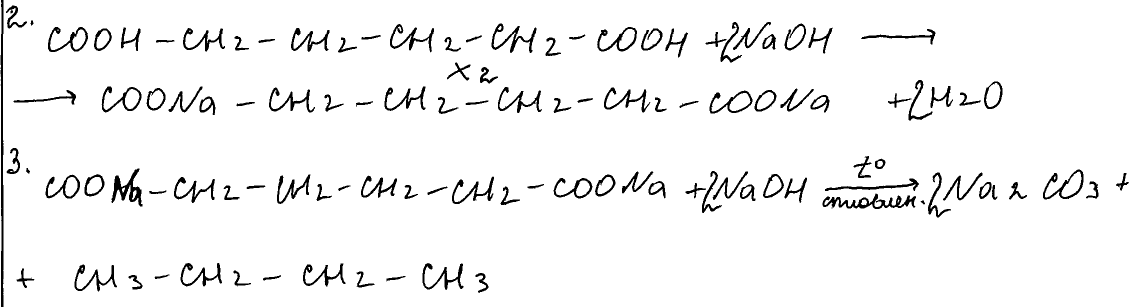 2. COOH – CH2 – CH2 – CH2 – CH2 – COOH + 2NaOH ⟶
X2
⟶ COONa – CH2 – CH2 – CH2 – CH2 – COONa + 2H2O
t°
3. COONa – CH2 – CH2 – CH2 – CH2 – COONa + 2NaOH ⟶ 2Na2CO3 +
сплавлен.
+ CH3 – CH2 – CH2 – CH3